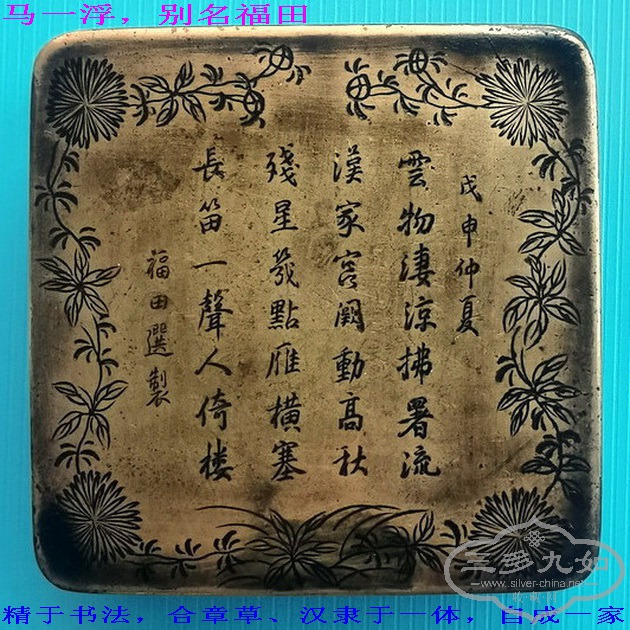 马一浮，别名福田
戊申仲夏
雲物淒涼拂署流
漢家宮闕動高秋
殘星幾點雁橫塞
長笛一聲人倚楼
福田選製
三多九如
www.silver-china.net
精于书法，合章草、汉隶于一体，自成一家